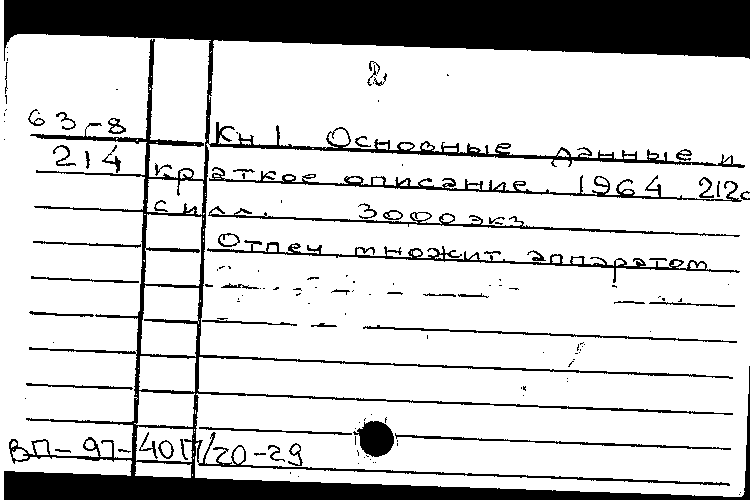 2
63-8 Кн 1. Основные данные и
214 краткое описание. 1964. 212с
с илл. 3000 экз
Отпеч. множит. аппаратом
ВП-97-40П/20-29